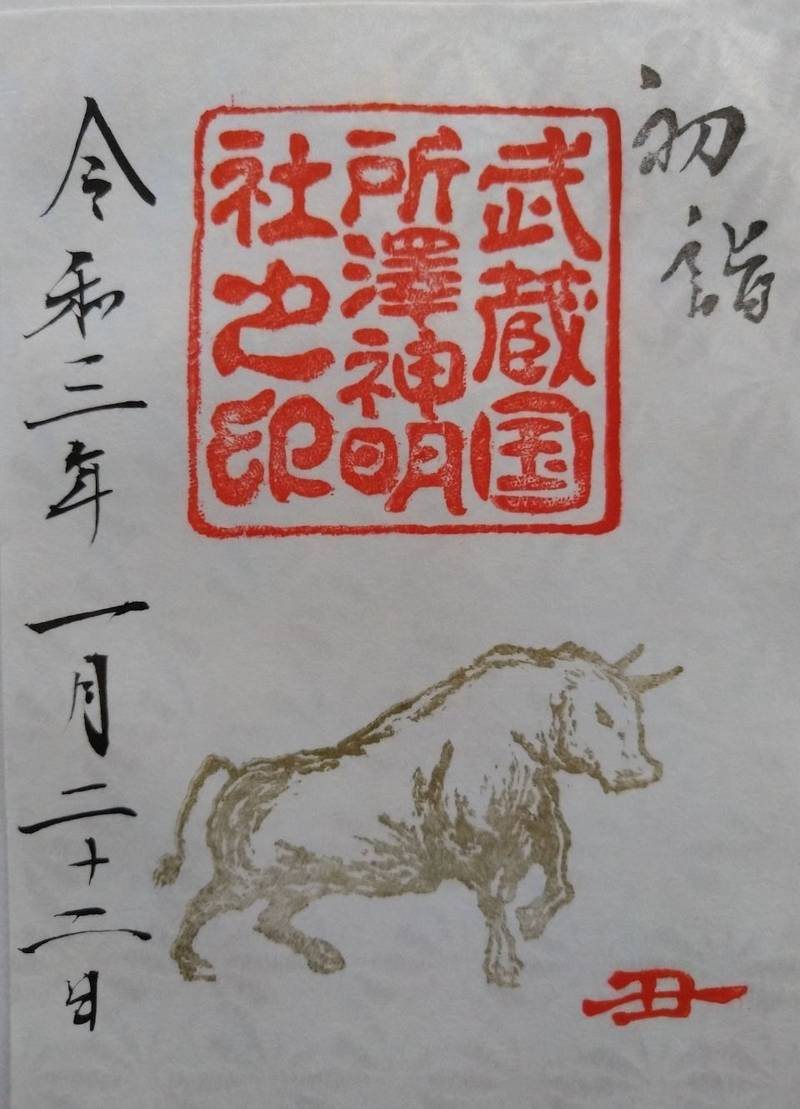 初詣
武蔵国
所澤神明
社之印
令和三年一月二十二日
丑